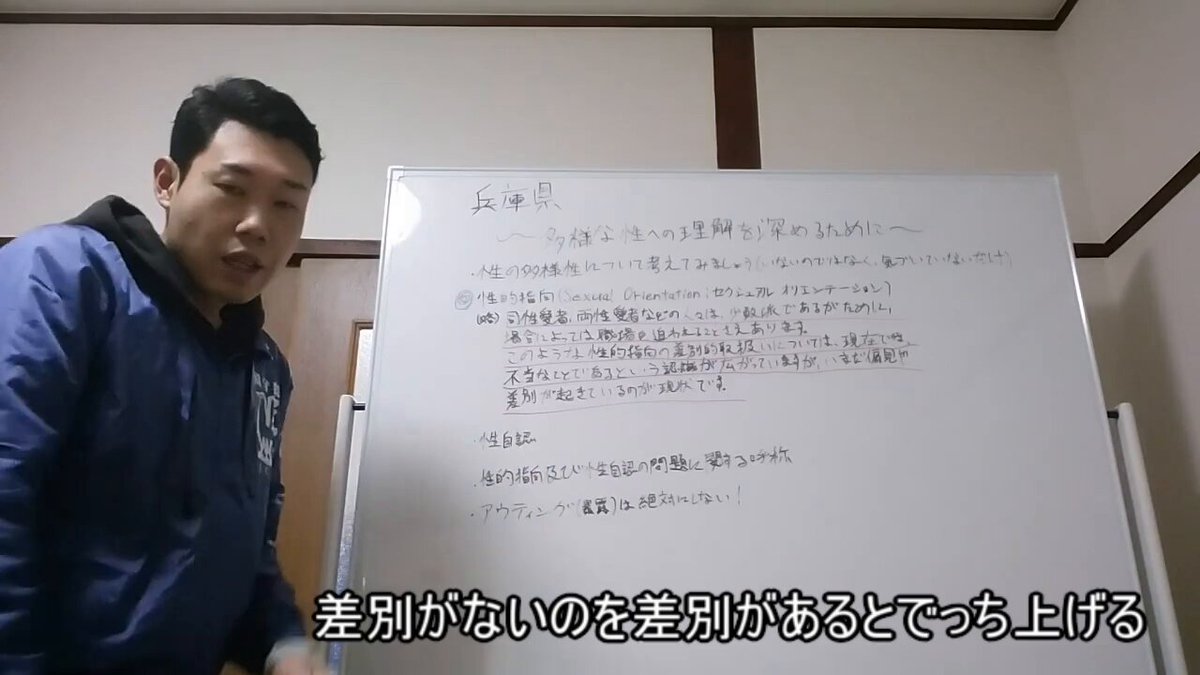 兵庫県
～多様な性への理解を深めるために～
・性の多様性について考えてみましょう(いないのではなく、気づいていないだけ)
性的指向(Sexual Orientation:セクシュアル オリエンテーション)
(略)同性愛者、両性愛者などの人々は、少数派であるがために、
場合によっては職場を追われることさえあります。
このような性的指向の差別的取扱いについては、現在では、
不当なことであるという認識が広がっていますが、いまだ偏見や
差別が起きているのが現状です。
・性自認
・性的指向及び性自認の問題に関する呼称
・アウティング(暴露)は絶対にしない!
差別がないのを差別があるとでっち上げる